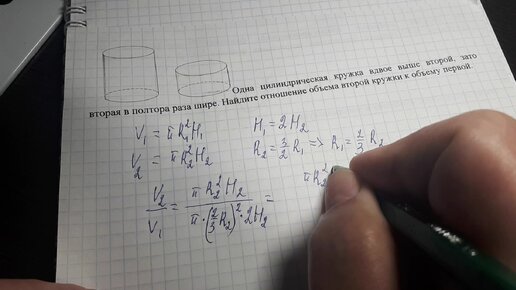 Одна цилиндрическая кружка вдвое выше второй, зато
вторая в полтора раза шире. Найдите отношение объема второй кружки к объему первой.
V₁ = πR₁²H₁
H₁ = 2H₂
V₂ = πR₂²H₂
R₂ = 3/2 R₁ => R₁ = 2/3 R₂
V₂/V₁ = πR₂²H₂ / π·(2/3 R₂)²·2H₂ =
πR₂²